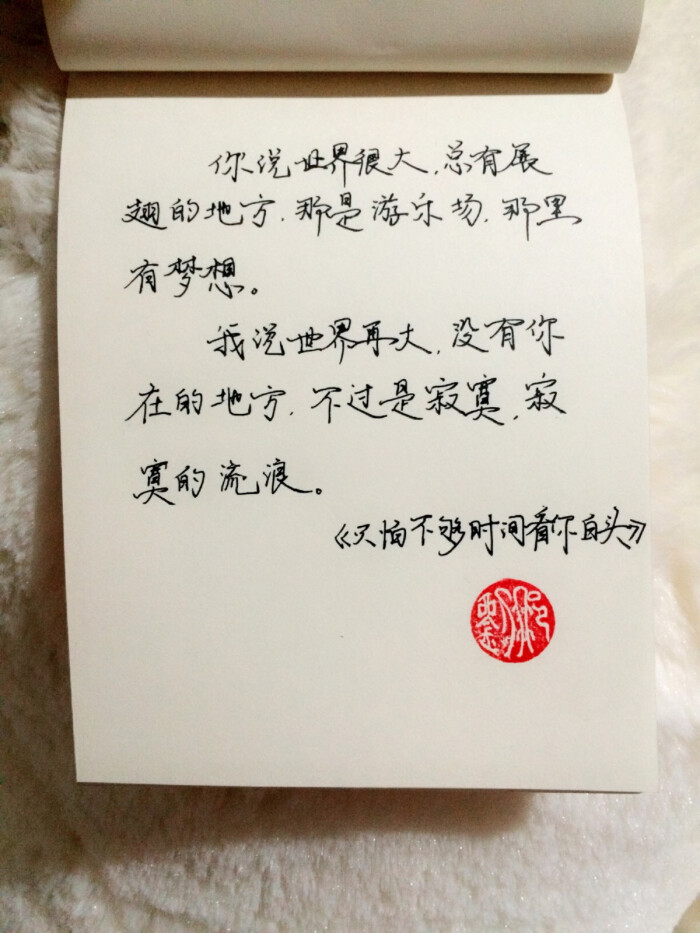 你说世界很大,总有展
翅的地方,那是游乐场,那里
有梦想。
我说世界再大,没有你
在的地方,不过是寂寞,寂
寞的流浪。
《只怕不够时间看你白头》